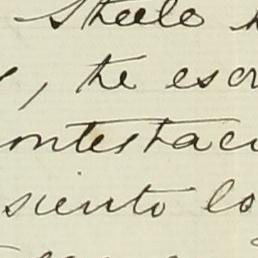 Steele
, he escr
ontestaci
siento lo